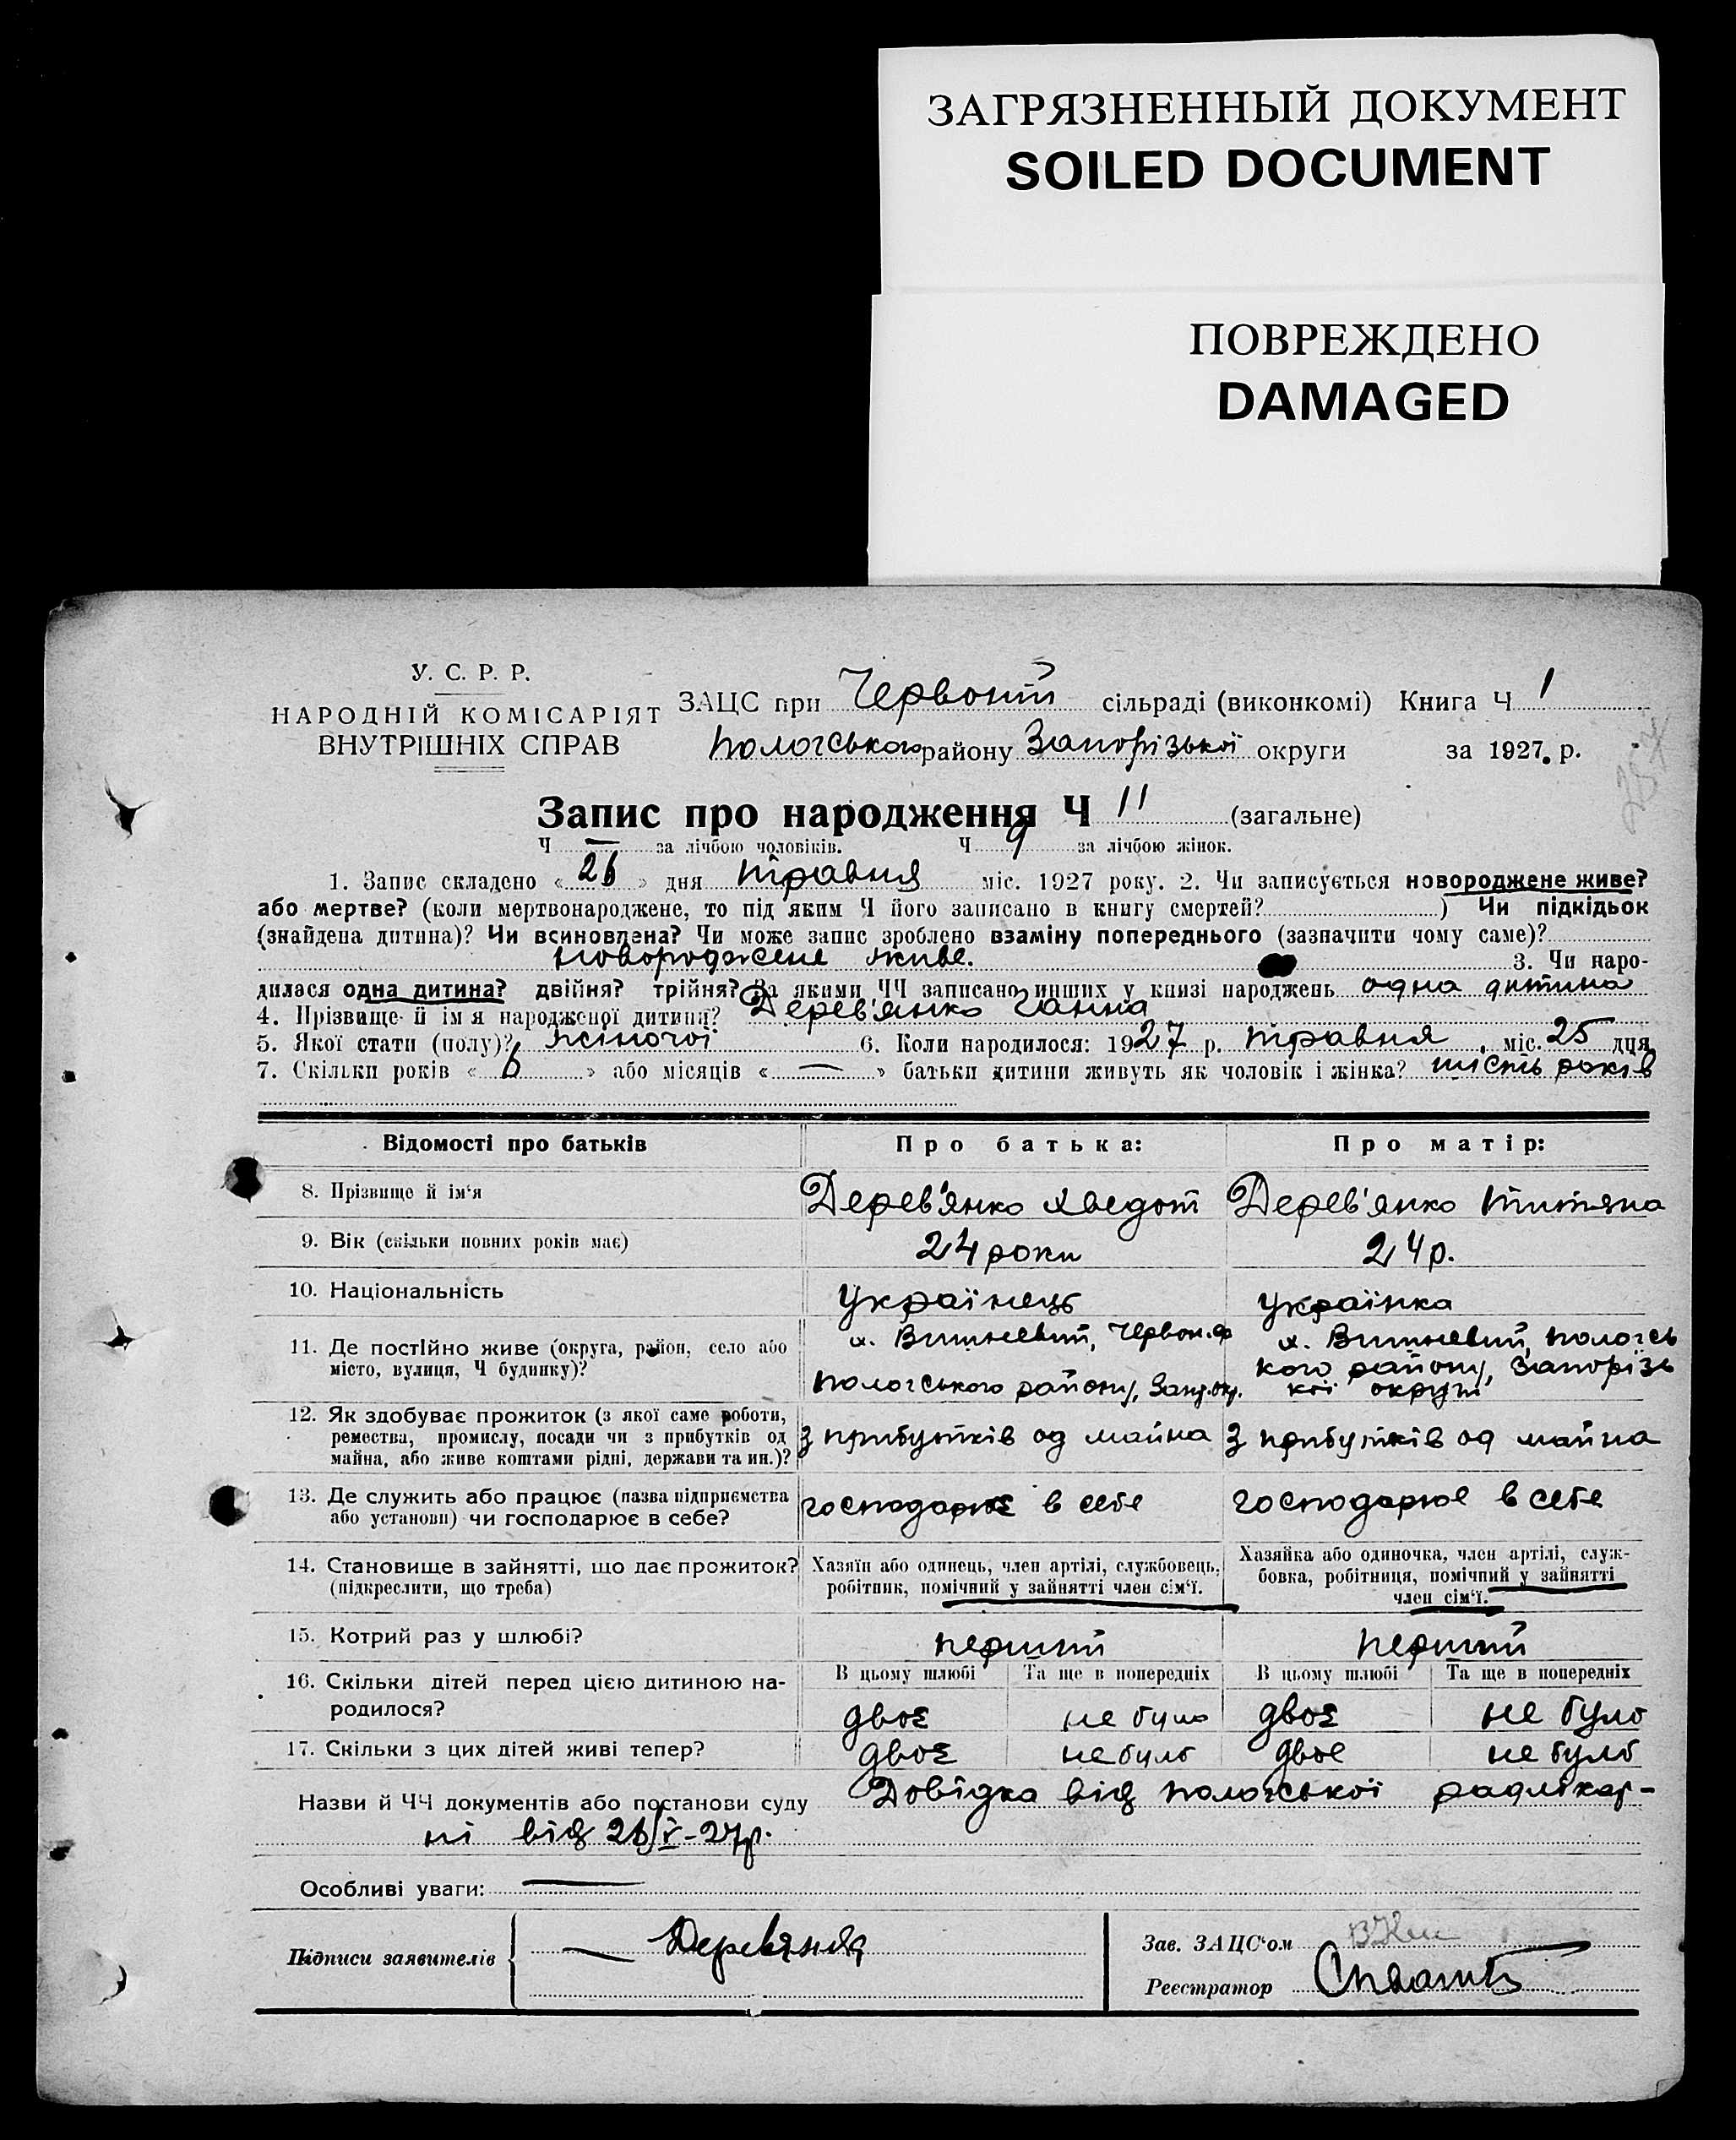 ЗАГРЯЗНЕННЫЙ ДОКУМЕНТ
SOILED DOCUMENT
ПОВРЕЖДЕНО
DAMAGED
У. С. Р. Р.
НАРОДНІЙ КОМІСАРІЯТ
ВНУТРІШНІХ СПРАВ
ЗАЦС при Червоній сільраді (виконкомі) Книга Ч 1
Пологського району Запорізької округи за 1927. р.
Запис про народження Ч 11 (загальне)
Ч — за лічбою чоловіків. Ч 9 за лічбою жінок.
1. Запис складено « 26 » дня травня міс. 1927 року. 2. Чи записується новороджене живе?
або мертве? (коли мертвонароджене, то під яким Ч його записано в книгу смертей? ) Чи підкідьок
(знайдена дитина)? Чи всиновлена? Чи може запис зроблено взаміну попереднього (зазначити чому саме)?
новороджене живе. 3. Чи наро-
дилася одна дитина? двійня? трійня? За якими ЧЧ записано инших у книзі народжень одна дитина
4. Прізвище й ім'я народженої дитини? Дерев'янко Ганна
5. Якої стати (полу)? жіночої 6. Коли народилося: 1927 р. травня, міс. 25 дня
7. Скільки років « 6 » або місяців « — » батьки дитини живуть як чоловік і жінка? шість років
Відомості про батьків Про батька: Про матір:
8. Прізвище й ім'я Дерев'янко Хведот Дерев'янко Тит'яна
9. Вік (скільки повних років має) 24 роки 24 р.
10. Національність Українець Українка
11. Де постійно живе (округа, район, село або
місто, вулиця, Ч будинку)?
х. Вишневий, Червон.
Пологського району, Запор. окр.
х. Вишневий, Пологсь
кого району, Запорізь
кої округи
12. Як здобуває прожиток (з якої саме роботи,
ремества, промислу, посади чи з прибутків од
майна, або живе коштами рідні, держави та ин.)?
з прибутків од майна з прибутків од майна
13. Де служить або працює (назва підприємства
або установи) чи господарює в себе?
господарює в себе господарює в себе
14. Становище в зайнятті, що дає прожиток?
(підкреслити, що треба)
Хазяїн або одинець, член артілі, службовець,
робітник, помічний у зайнятті член сім'ї.
Хазяйка або одиночка, член артілі, служ-
бовка, робітниця, помічний у зайнятті
член сім'ї.
15. Котрий раз у шлюбі? перший перший
16. Скільки дітей перед цією дитиною на-
родилося?
В цьому шлюбі Та ще в попередніх В цьому шлюбі Та ще в попередніх
двоє не було двоє не було
17. Скільки з цих дітей живі тепер? двоє не було двоє не було
Назви й ЧЧ документів або постанови суду Довідка від Пологської радлікар-
ні від 26/V-27р.
Особливі уваги: —
Підписи заявителів — Деревянко
Зав. ЗАЦС'ом
Реєстратор